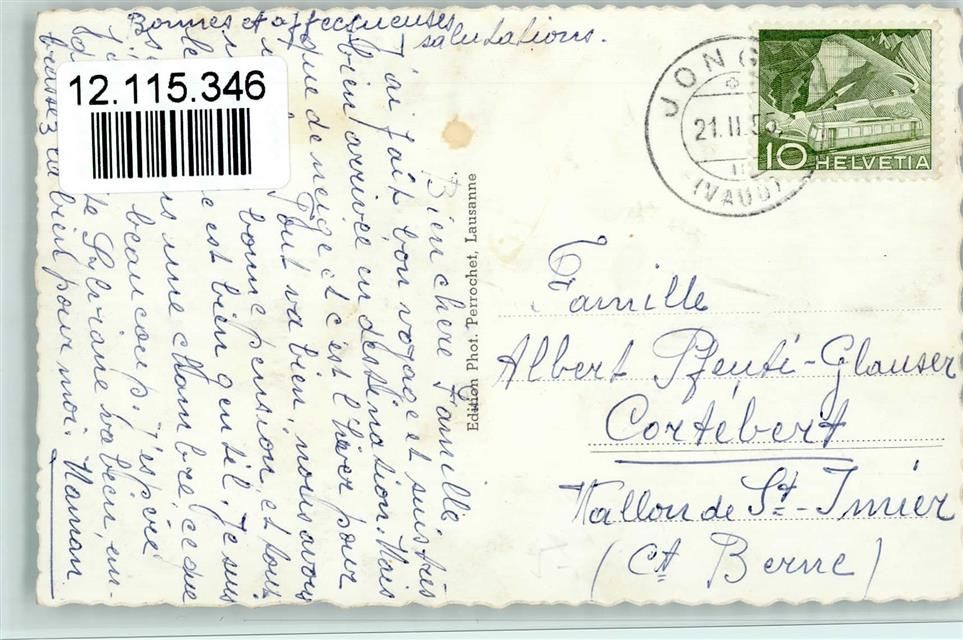 Bonnes et affectueuses
salutations.
12.115.346
Bien chère famille
J'ai fait bon voyage et suis très
bien arrivée en destination. Mais
que de neige et c'est l'hiver pour
Tout va bien, nous avons
bonne pension, et tous
est bien gentil. Je suis
une chambre, ce que
beaucoup. J'espère
te Sylviane va bien, em-
brassez la bien pour moi. Maman
Edition Phot. Perrochet, Lausanne
JONG
21.II.55
(VAUD)
10 HELVETIA
Famille
Albert Pfeuti-Glauser
Cortébert
Vallon de St-Imier
(Ct Berne)